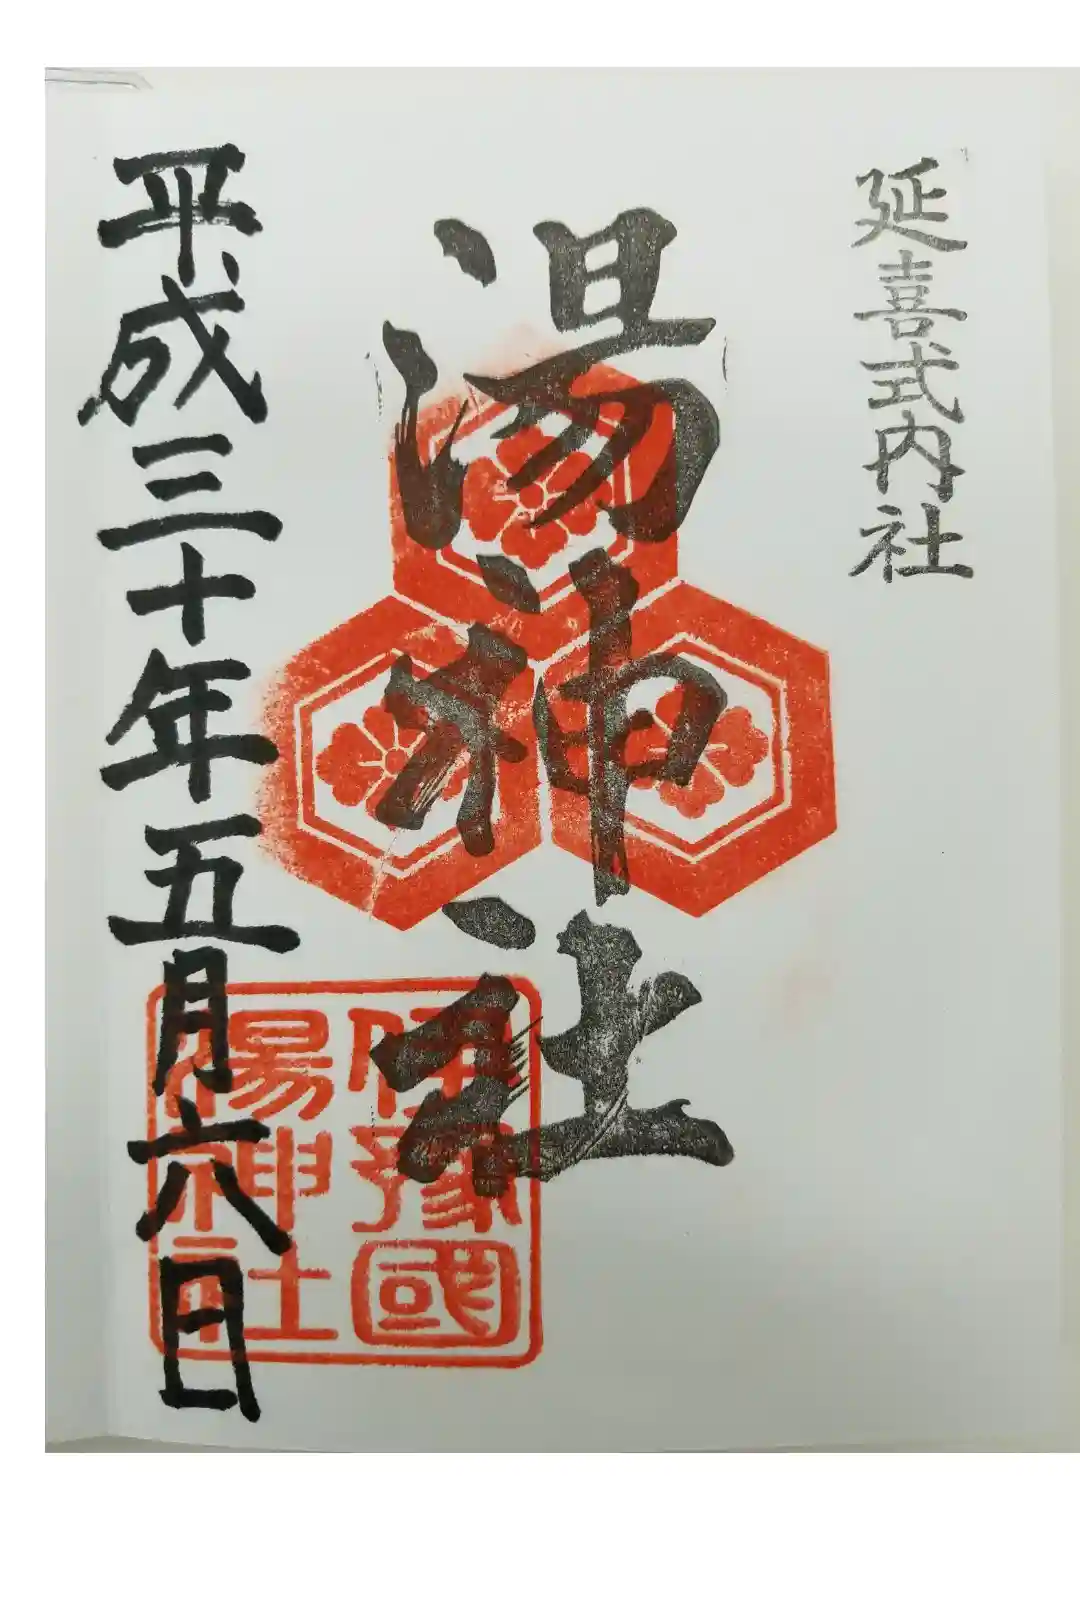 延喜式内社
湯神社
伊豫國
湯神社
平成三十年五月六日